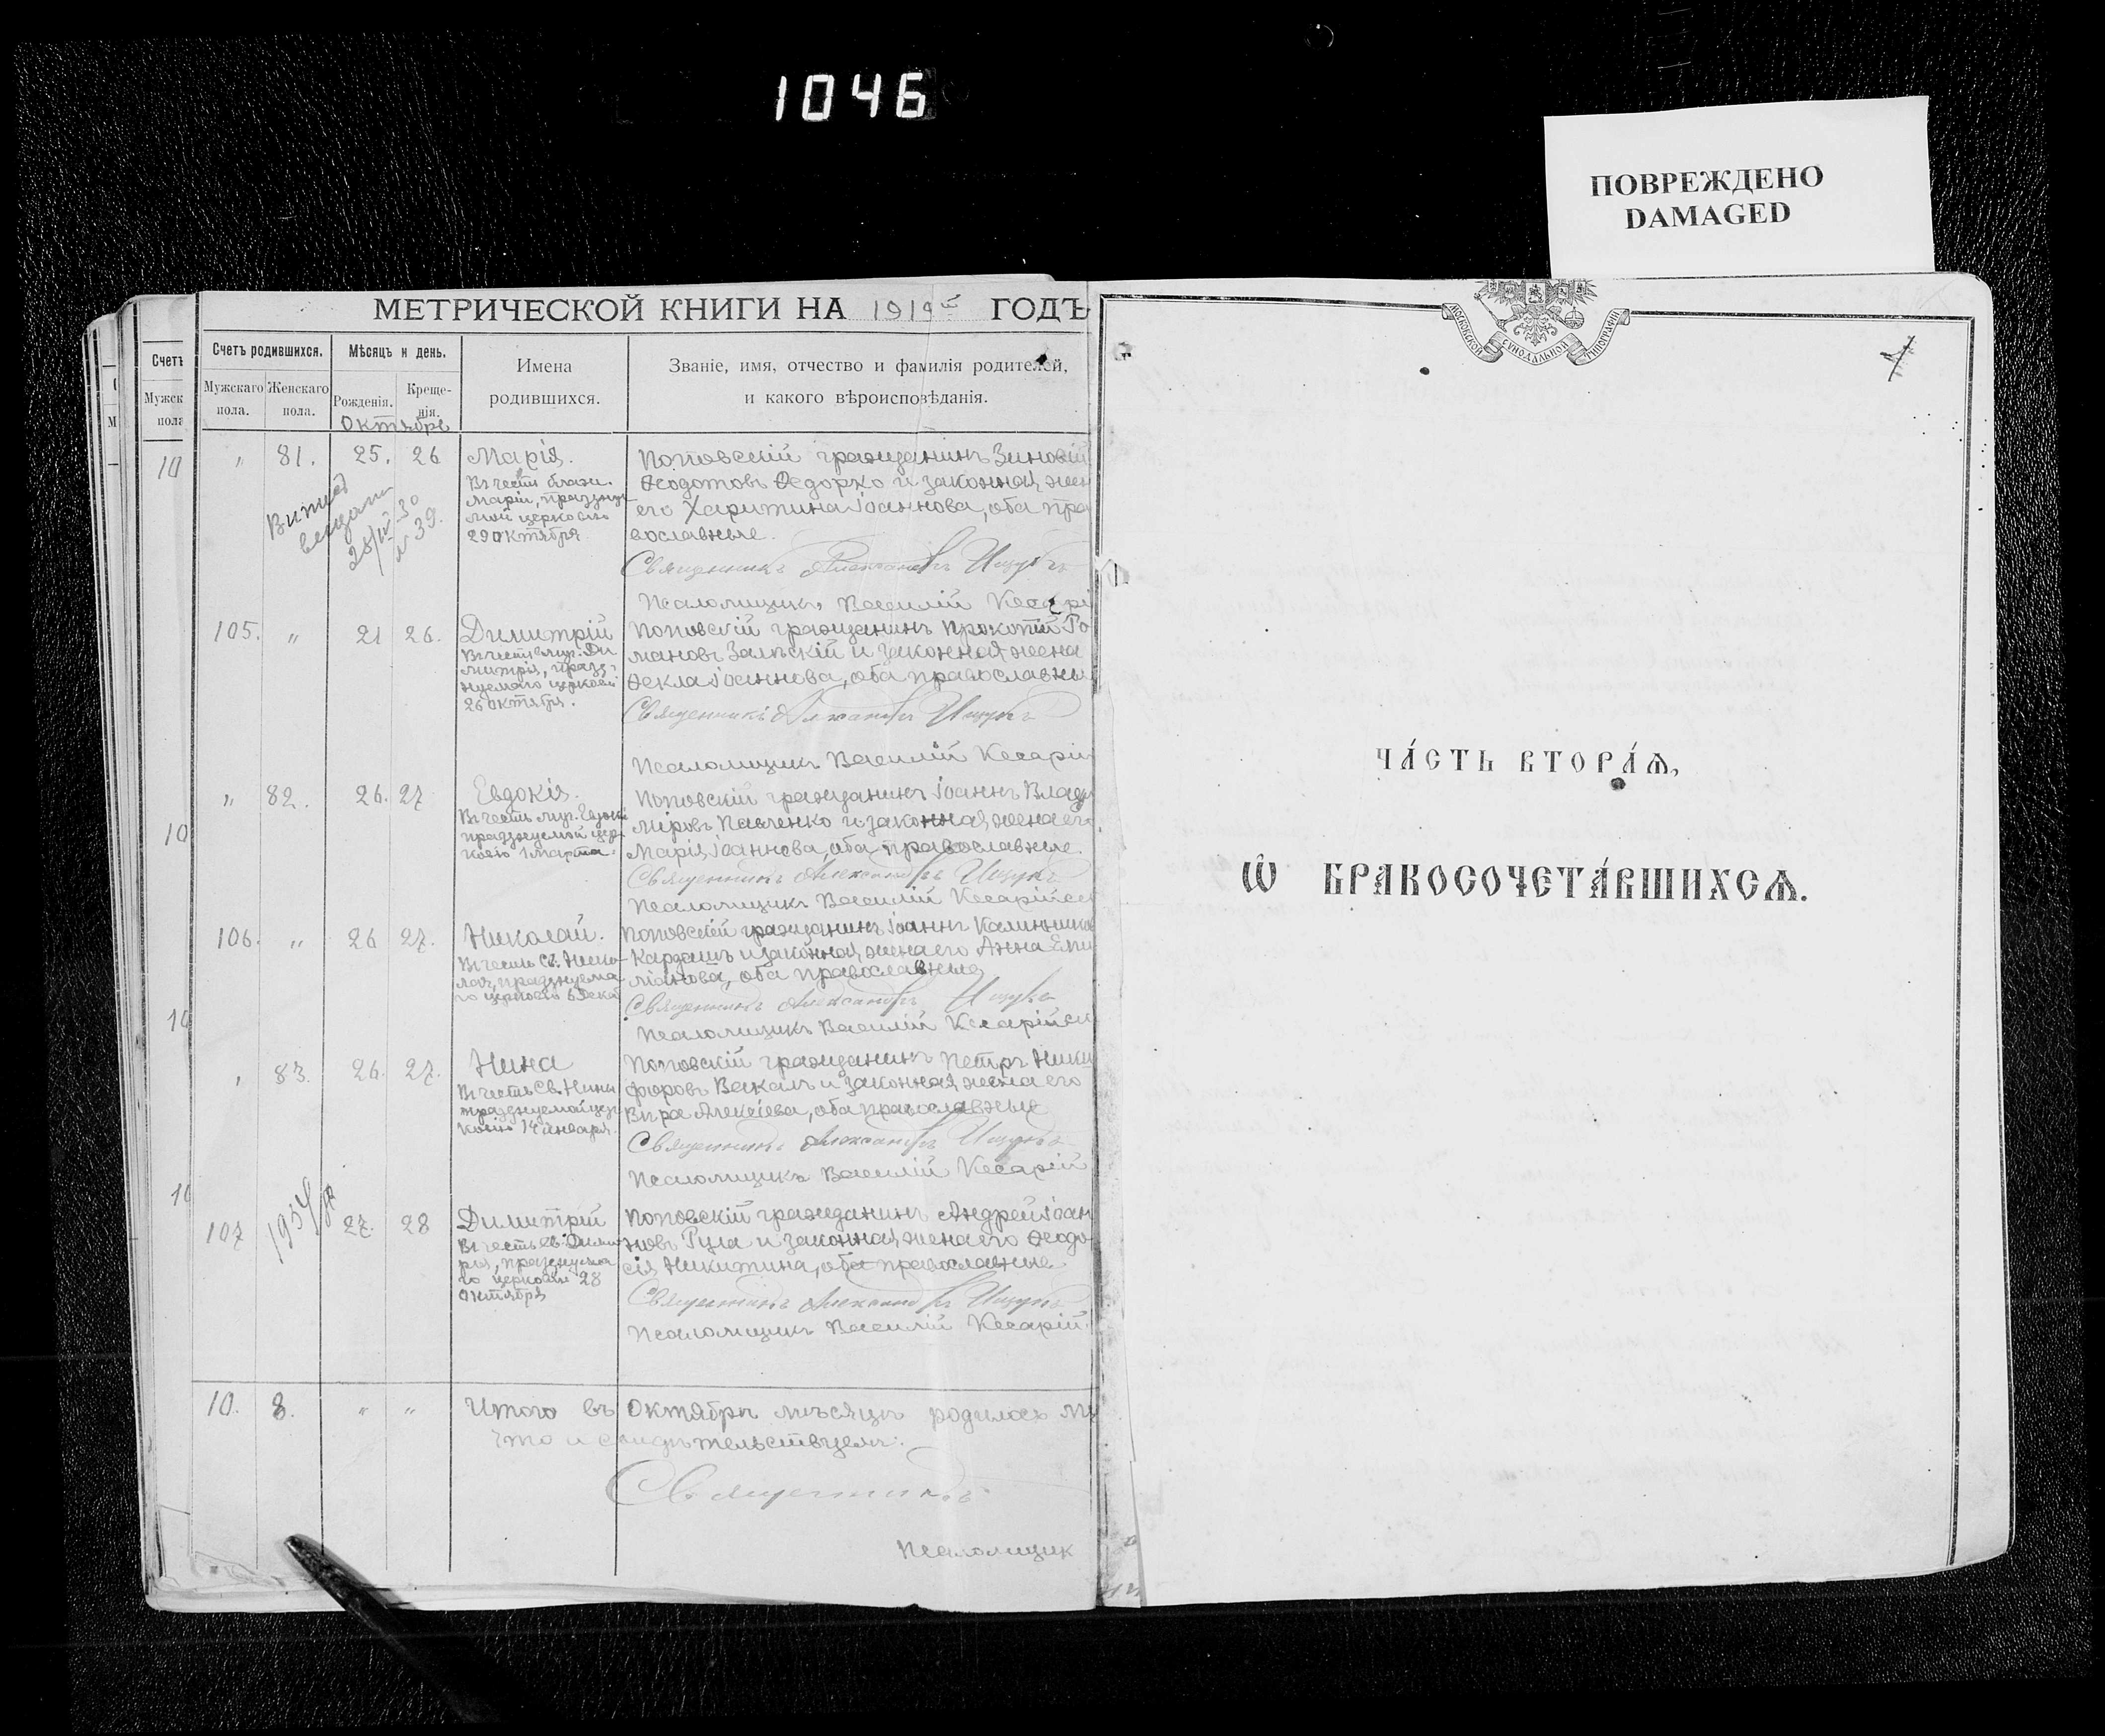 1046
ПОВРЕЖДЕНО
DAMAGED
МЕТРИЧЕСКОЙ КНИГИ НА 1919й ГОДЪ
Счетъ
Мужск
пола
Счетъ родившихся.
Мѣсяцъ и день.
Имена
родившихся.
Званіе, имя, отчество и фамилія родителей,
и какого вѣроисповѣданія.
Мужскаго
пола.
Женскаго
пола.
Рожденія.
Креще-
нія.
Октябрь
10
" 81. 25. 26
Марія.
Въ честь блажн.
Маріи, празднуе
мой церковію
29 октября.
Поповскій гражданинъ Зиновій
Ѳеодотовъ Ѳедорко и законная жен
его Харитина Іоаннова, оба пра
вославные.
Священникъ Александръ
Псаломщикъ Василій Кесарі
28/IV 30
№ 39.
105. " 21 26.
Димитрій
Въ честь муч. Ди
митрія, празд-
нуемаго церковію
26 октября.
Поповскій гражданинъ Прокопій Ро
мановъ Залѣскій и законная жена
Ѳекла Іоаннова, оба православны
Священникъ Александръ
Псаломщикъ Василій Кесарій
" 82. 26. 27
Евдокія.
Въ честь муч. Евдокі
празднуемой цер
ковію 1 марта.
Поповскій гражданинъ Іоаннъ Влади
міровъ Павленко и законная жена его
Марія Іоаннова, оба православные.
Священникъ Александръ
Псаломщикъ Василій Кесарійск
10
106. " 26 27.
Николай.
Въ честь св. Нико-
лая, празднуема-
го церковію 6 Декаб
Поповскій гражданинъ Іоаннъ Калинников
Кардашъ и законная жена его Анна Еми
ліанова, оба православные
Священникъ Александръ
Псаломщикъ Василій Кесарійск
10
" 83. 26. 27.
Нина
Въ честь св. Нины
празднуемой цер
ковію 14 Января.
Поповскій гражданинъ Петръ Ники
форовъ Вакалъ и законная жена его
Вѣра Алексіева, оба православные
Священникъ Александръ
Псаломщикъ Василій Кесарій
10
107 27. 28
Димитрій
Въ честь св. Димит
рія, празднуема
го церковію 28
октября
Поповскій гражданинъ Андрей Іоан
новъ Гула и законная жена его Ѳеодо
сія Никитина, оба православные.
Священникъ Александръ
Псаломщикъ Василій Кесарій
10. 8. " "
Итого въ Октябрѣ мѣсяцѣ родилось му
что и свидѣтельствуемъ.
Священникъ
Псаломщик
МОСКОВСКОЙ СѴНОДАЛЬНОЙ ТИПОГРАФІИ
1
ЧА́СТЬ ВТОРА́Ѧ,
Ѽ БРАКОСОЧЕТА́ВШИХСѦ.